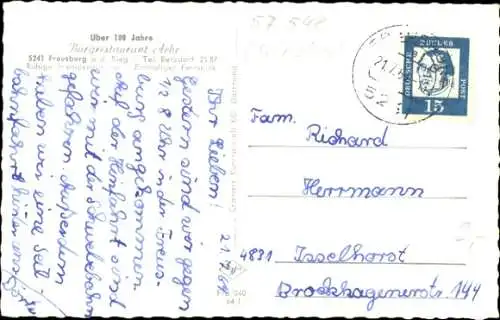 Über 100 Jahre
Burgrestaurant Aehr
5241 Freusburg a. d. Sieg Tel. Betzdorf
21.7.64
Ihr Lieben!
Gestern sind wir gegen
1/2 8 Uhr in der Freus-
burg angekommen
Auf der Hinfahrt sind
wir mit der Schwebebahn
gefahren. Außerdem
haben wir eine Seil-
bahnfahrt hinter uns.
DEUTSCHE POST
15
Fam.
Richard
Herrmann
4831 Isselhorst
Brockhagenerstr. 144